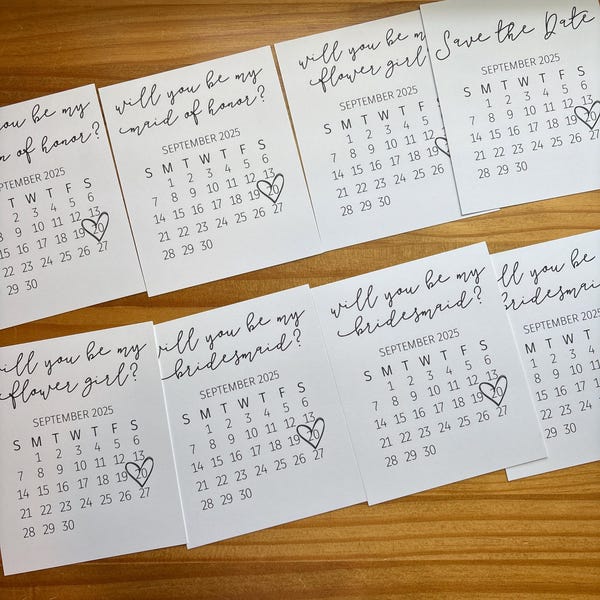 ou be my
n of honor?
PTEMBER 2025
T W T F S
2 3 4 5 6
9 10 11 12 13
15 16 17 18 19 20
22 23 24 25 26 27
29 30
will you be my
maid of honor?
SEPTEMBER 2025
S M T W T F S
1 2 3 4 5 6
7 8 9 10 11 12 13
14 15 16 17 18 19 20
21 22 23 24 25 26 27
28 29 30
will you be m
flower girl
SEPTEMBER 2025
S M T W T F S
1 2 3 4 5
7 8 9 10 11 12
14 15 16 17 18 19
21 22 23 24 25 26
28 29 30
Save the Date
SEPTEMBER 2025
S M T W T F S
1 2 3 4 5 6
7 8 9 10 11 12 13
14 15 16 17 18 19 20
21 22 23 24 25 26 27
28 29 30
will you be my
flower girl?
SEPTEMBER 2025
S M T W T F S
1 2 3 4 5 6
7 8 9 10 11 12 13
14 15 16 17 18 19 20
21 22 23 24 25 26 27
28 29 30
will you be my
bridesmaid?
SEPTEMBER 2025
S M T W T F S
1 2 3 4 5 6
7 8 9 10 11 12 13
14 15 16 17 18 19 20
21 22 23 24 25 26 27
28 29 30
will you be my
bridesmaid?
SEPTEMBER 2025
S M T W T F S
1 2 3 4 5 6
7 8 9 10 11 12 13
14 15 16 17 18 19 20
21 22 23 24 25 26 27
28 29 30
ll you be
bridesmai
SEPTEMBER 2025
M T W T
1 2 3 4
8 9 10 11
15 16 17 18
22 23 24
29 30